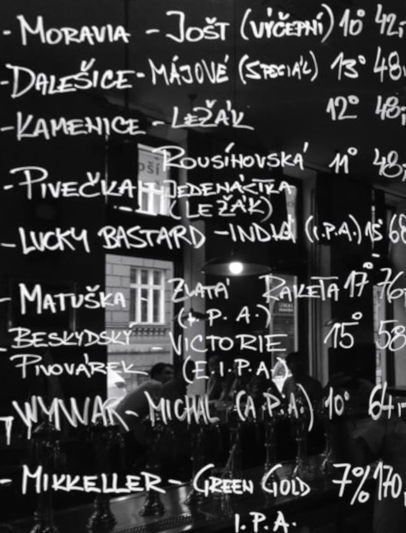 - MORAVIA - JOŠT (VÝČEPNÍ) 10° 42,-
- DALEŠICE - MÁJOVÉ (SPECIÁL) 13° 48,
- KAMENICE - LEŽÁK 12° 48,-
ROUSÍNOVSKÁ 11° 48,
- PIVEČKA - JEDENÁCTKA
(LEŽÁK)
- LUCKY BASTARD - INDIA (I.P.A.) 15° 68
- MATUŠKA ZLATÁ RAKETA 17° 76
(I.P.A.)
BESKYDSKÝ VICTORIE 15° 58
PIVOVÁREK (E.I.P.A.)
WYWAR - MICHAL (A.P.A.) 10° 64,-
- MIKKELLER - GREEN GOLD 7% 170,
I.P.A.